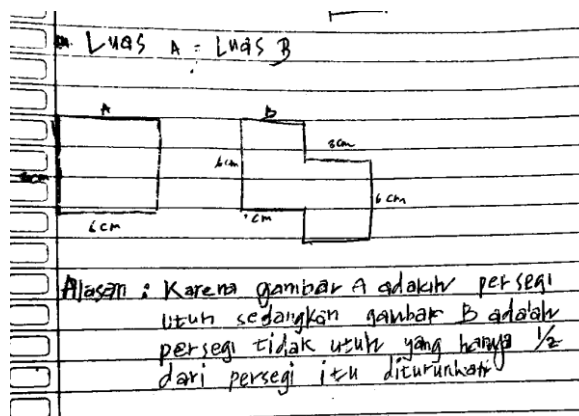 Luas A = Luas B
A
B
3cm
6cm
6 cm
6 cm
cm
Alasan : Karena gambar A adalah persegi
utuh sedangkan gambar B adalah
persegi tidak utuh yang hanya 1/2
dari persegi itu diturunkan